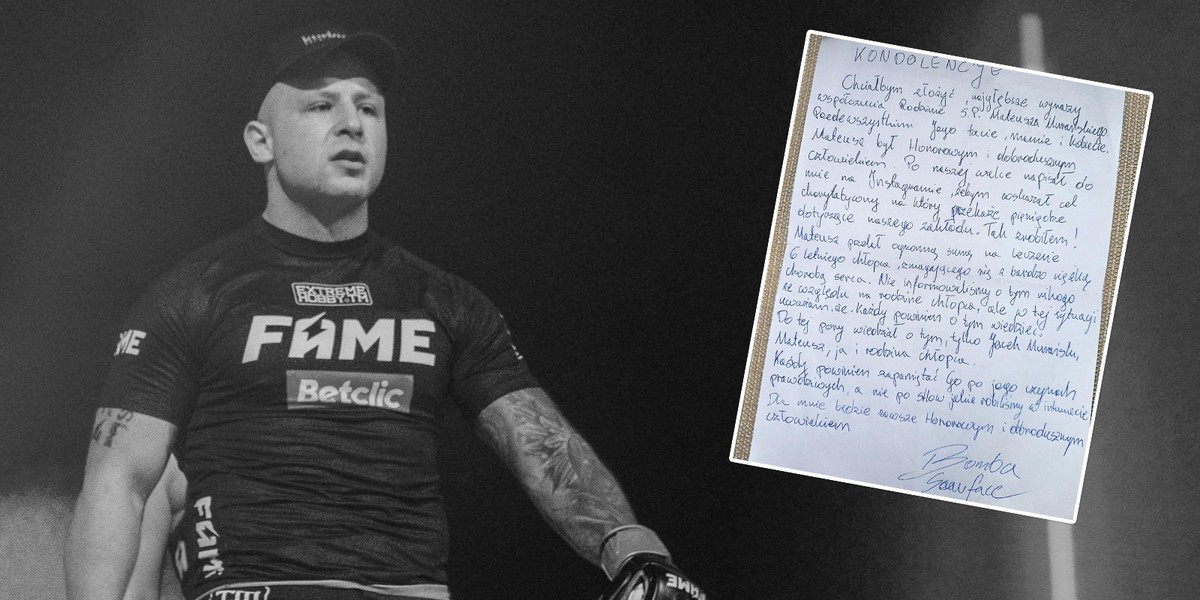 EXTREME
HOBBY TM
FAME
ME
Betclic
FAME
FAME
KONDOLENCJE
Chciałbym złożyć najgłębsze wyrazy
współczucia Rodzinie Ś.P. Mateusza Murańskiego.
Przedewszystkim Jego tacie, mamie i kobiecie.
Mateusz był Honorowym i dobrodusznym
człowiekiem. Po naszej walce napisał do
mnie na Instagramie, żebym wskazał cel
charytatywny na który przekaże pieniądze
dotyczące naszego zakłodu. Tak zrobiłem!
Mateusz przelał ogromną sumę na leczenie
6 letniego chłopca, zmagającego się z bardzo ciężką
chorobą serca. Nie informowaliśmy o tym nikogo
ze względu na rodzinę chłopca, ale w tej sytuacji
uważam, że każdy powinien o tym wiedzieć.
Do tej pory wiedział o tym, tylko Jacek Murański,
Mateusz, ja i rodzina chłopca.
Każdy powinien zapamiętać Go po jego czynach
prawdziwych, a nie po słow jakie robiliśmy w internecie
Dla mnie będzie zawsze Honorowym i dobrodusznym
człowiekiem
Bomba
Scarface